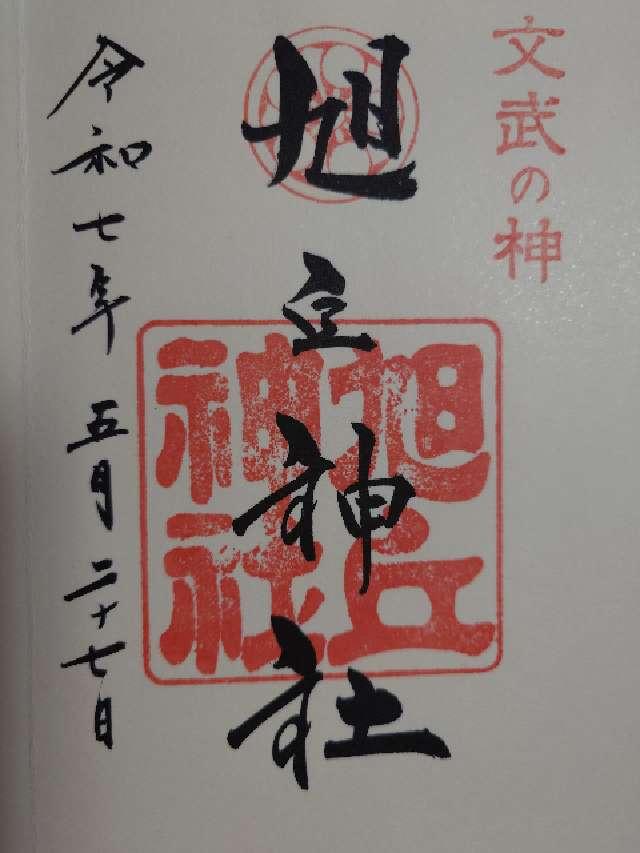 文武の神
旭丘神社
旭丘
神社
令和七年 五月二十七日